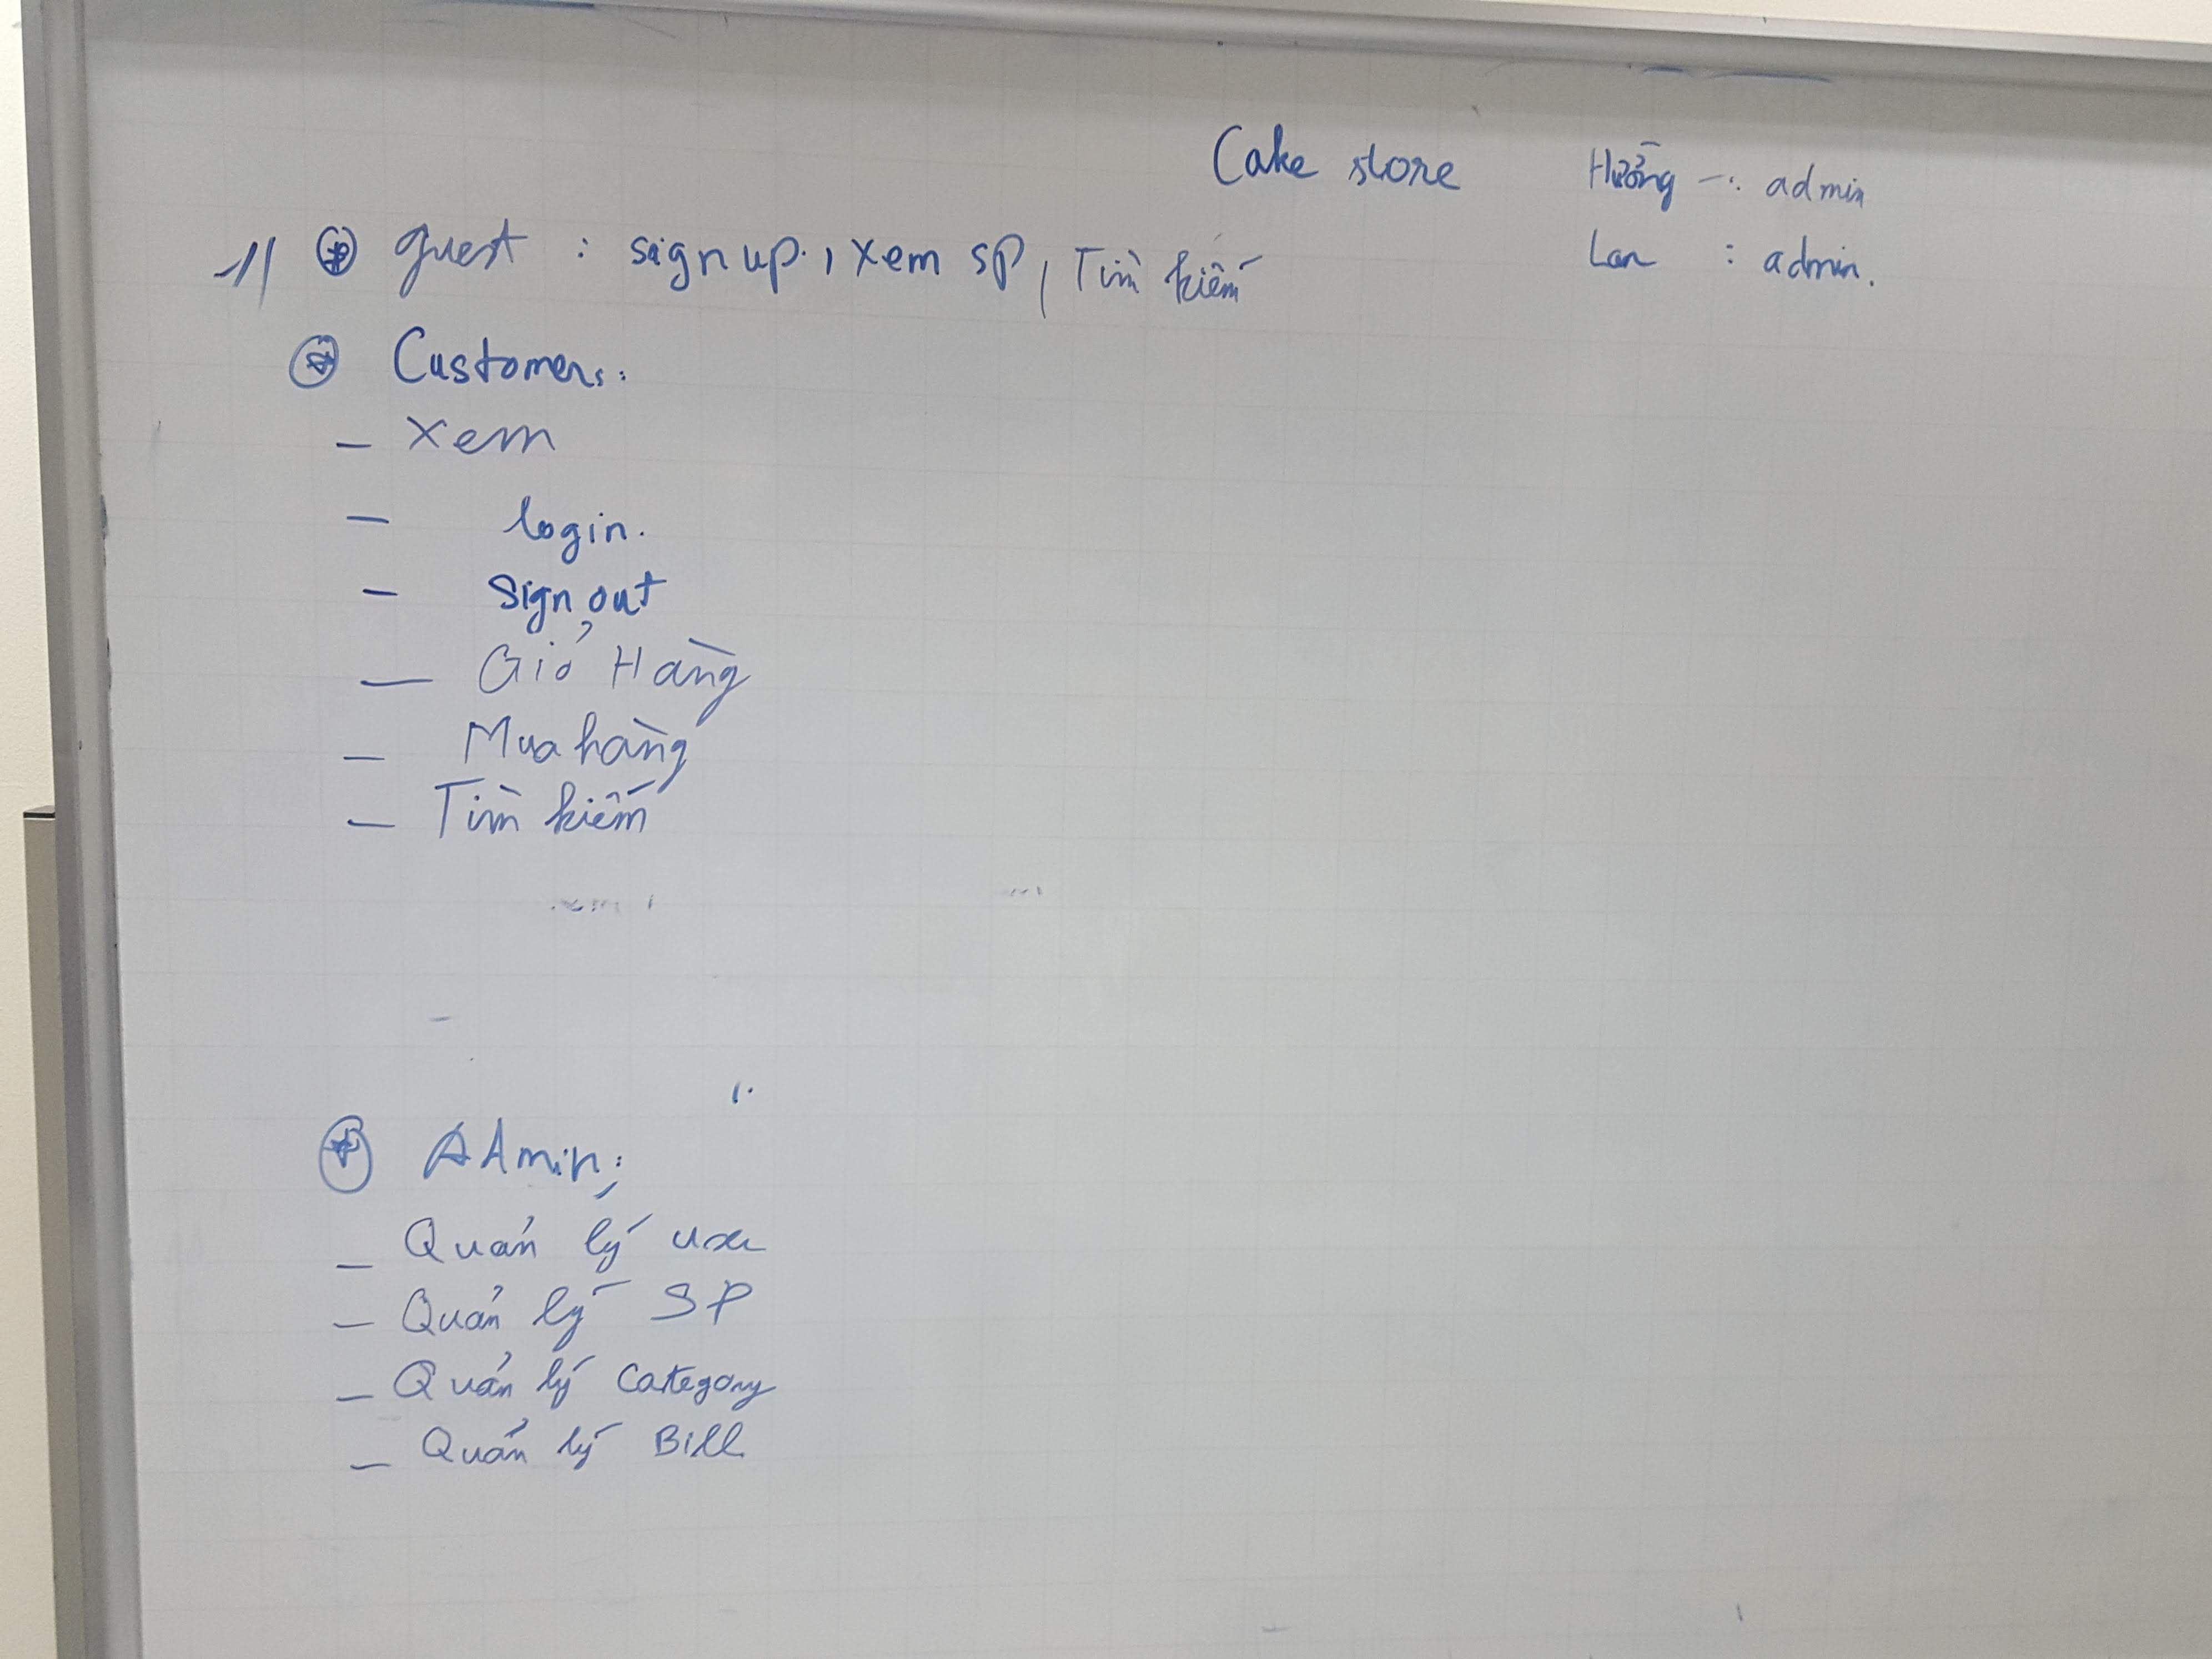 Cake store
Hưởng : admin
Lan : admin.
1/ guest : sign up, Xem SP, Tìm kiếm
Customers:
- Xem
- login.
- Sign out
- Giỏ Hàng
- Mua hàng
- Tìm kiếm
Admin:
- Quản lý user
- Quản lý SP
- Quản lý Category
- Quản lý Bill